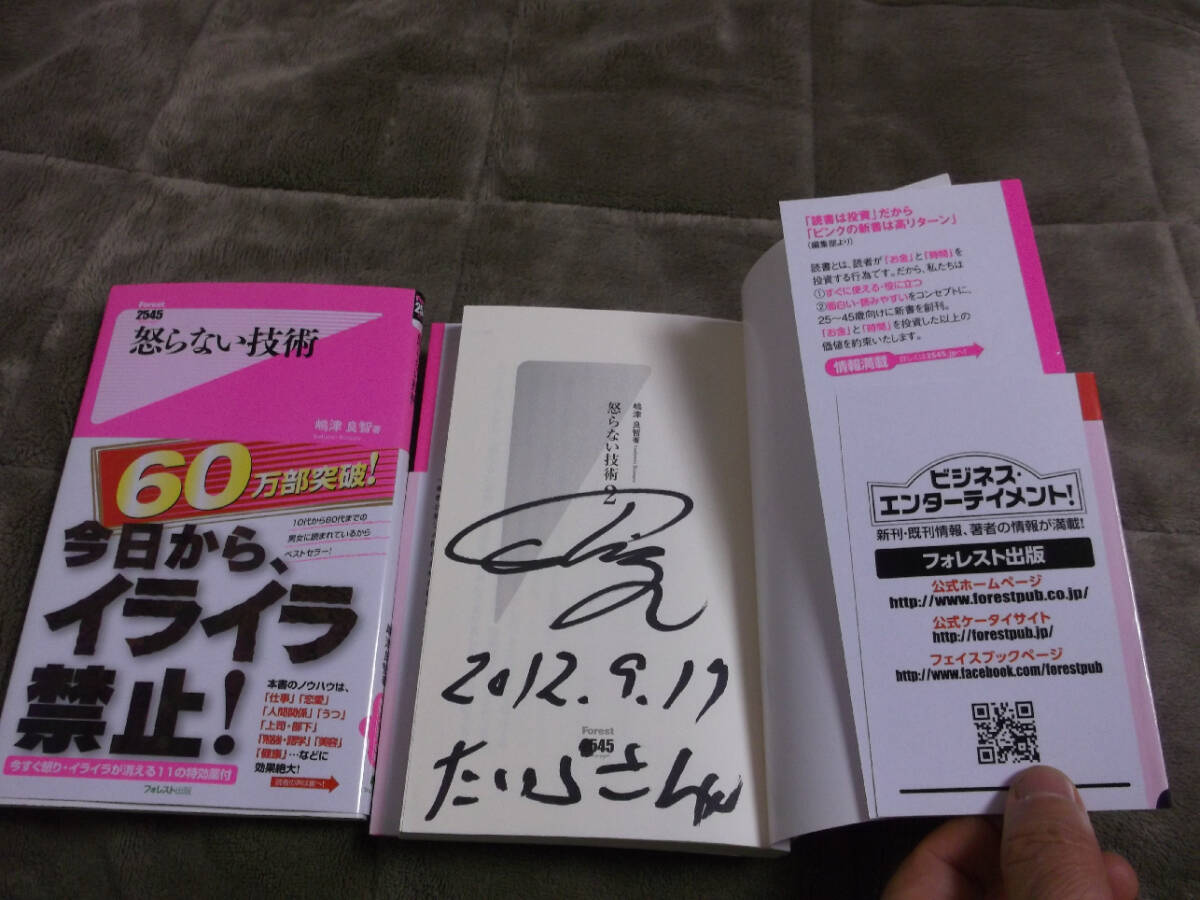 Forest
2545
怒らない技術
嶋津 良智 著
60万部突破!
10代から80代までの
男女に読まれているから
ベストセラー!
今日から、
イライラ
禁止!
本書のノウハウは、
「仕事」「恋愛」
「人間関係」「うつ」
「上司・部下」
「美容」
「健康」…などに
効果絶大!
今すぐ怒り・イライラが消える11の特効薬付
フォレスト出版
嶋津 良智 著
怒らない技術 2
2012.9.19
Forest
2545
「読書は投資」だから
「ピンクの新書は高リターン」
(編集部より)
読書とは、読者が「お金」と「時間」を
投資する行為です。だから、私たちは
①すぐに使える・役に立つ
②面白い・読みやすいをコンセプトに、
25〜45歳向けに新書を創刊。
「お金」と「時間」を投資した以上の
価値を約束いたします。
情報満載 詳しくは2545.jpへ!
ビジネス・
エンターテイメント!
新刊・既刊情報、著者の情報が満載!
フォレスト出版
公式ホームページ
http://www.forestpub.co.jp/
公式ケータイサイト
http://forestpub.jp/
フェイスブックページ
http://www.facebook.com/forestpub